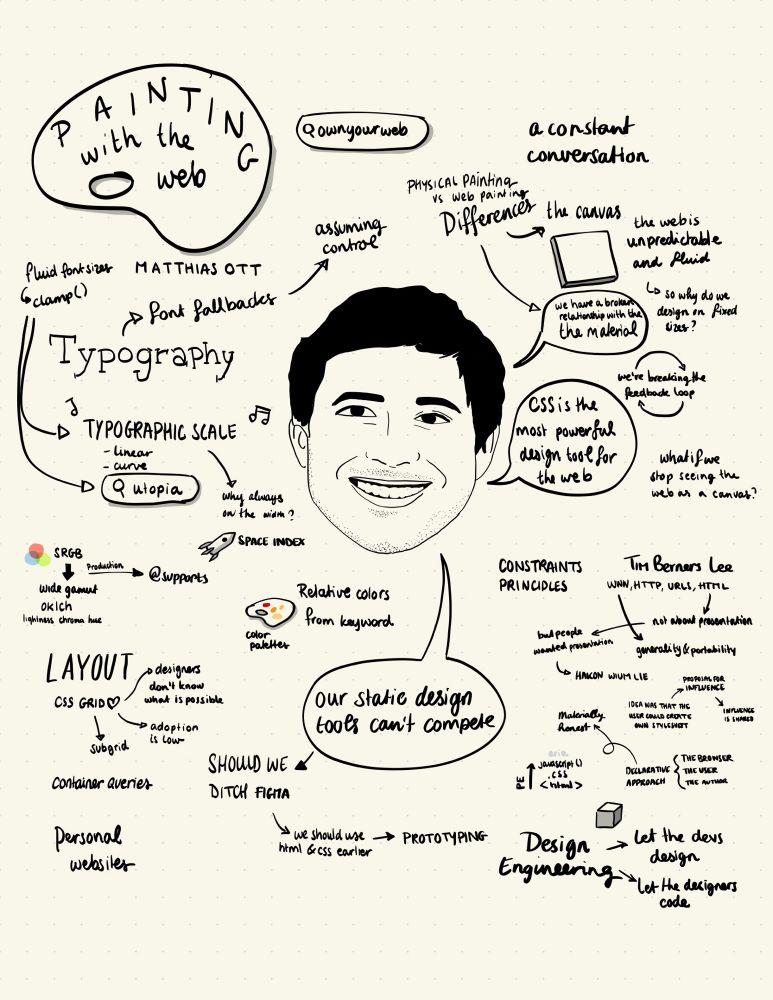 PAINTING
with the
web
ownyourweb
a constant
conversation
PHYSICAL PAinting
vs web painting
Differences
the canvas
the web is
unpredictable
and fluid
so why do we
design on fixed
sizes?
we have a broken
relationship with the
the material
we're breaking the
feedback loop
CSS is the
most powerful
design tool for
the web
what if we
stop seeing the
web as a canvas?
assuming
control
MATTHIAS OTT
fluid font sizes
clamp()
font fallbacks
Typography
TYPOGRAPHIC SCALE
- linear
- curve
utopia
why always
on the width?
SPACE INDEX
SRGB
Production
@supports
wide gamut
OKlCh
lightness chroma hue
color
palettes
Relative colors
from keyword
CONSTRAINTS
PRINCIPLES
Tim Berners Lee
WWW, HTTP, URLS, HTML
not about presentation
but people
wanted presentation
generality & portability
HAKON WIUM LIE
PROPOSAL FOR
INFLUENCE
IDEA WAS THAT THE
USER COULD CREATE
OWN STYLESHEET
INFLUENCE
IS SHARED
Materially
honest
DECLARATIVE
APPROACH
THE BROWSER
THE USER
THE AUTHOR
PE
aria
javascript()
.css
<html>
LAYOUT
CSS GRID
designers
don't know
what is possible
adoption
is low
subgrid
container queries
Personal
websites
our static design
tools can't compete
SHOULD WE
DITCH FIGMA
we should use
html & css earlier
PROTOTYPING
Design
Engineering
let the devs
design
let the designers
code